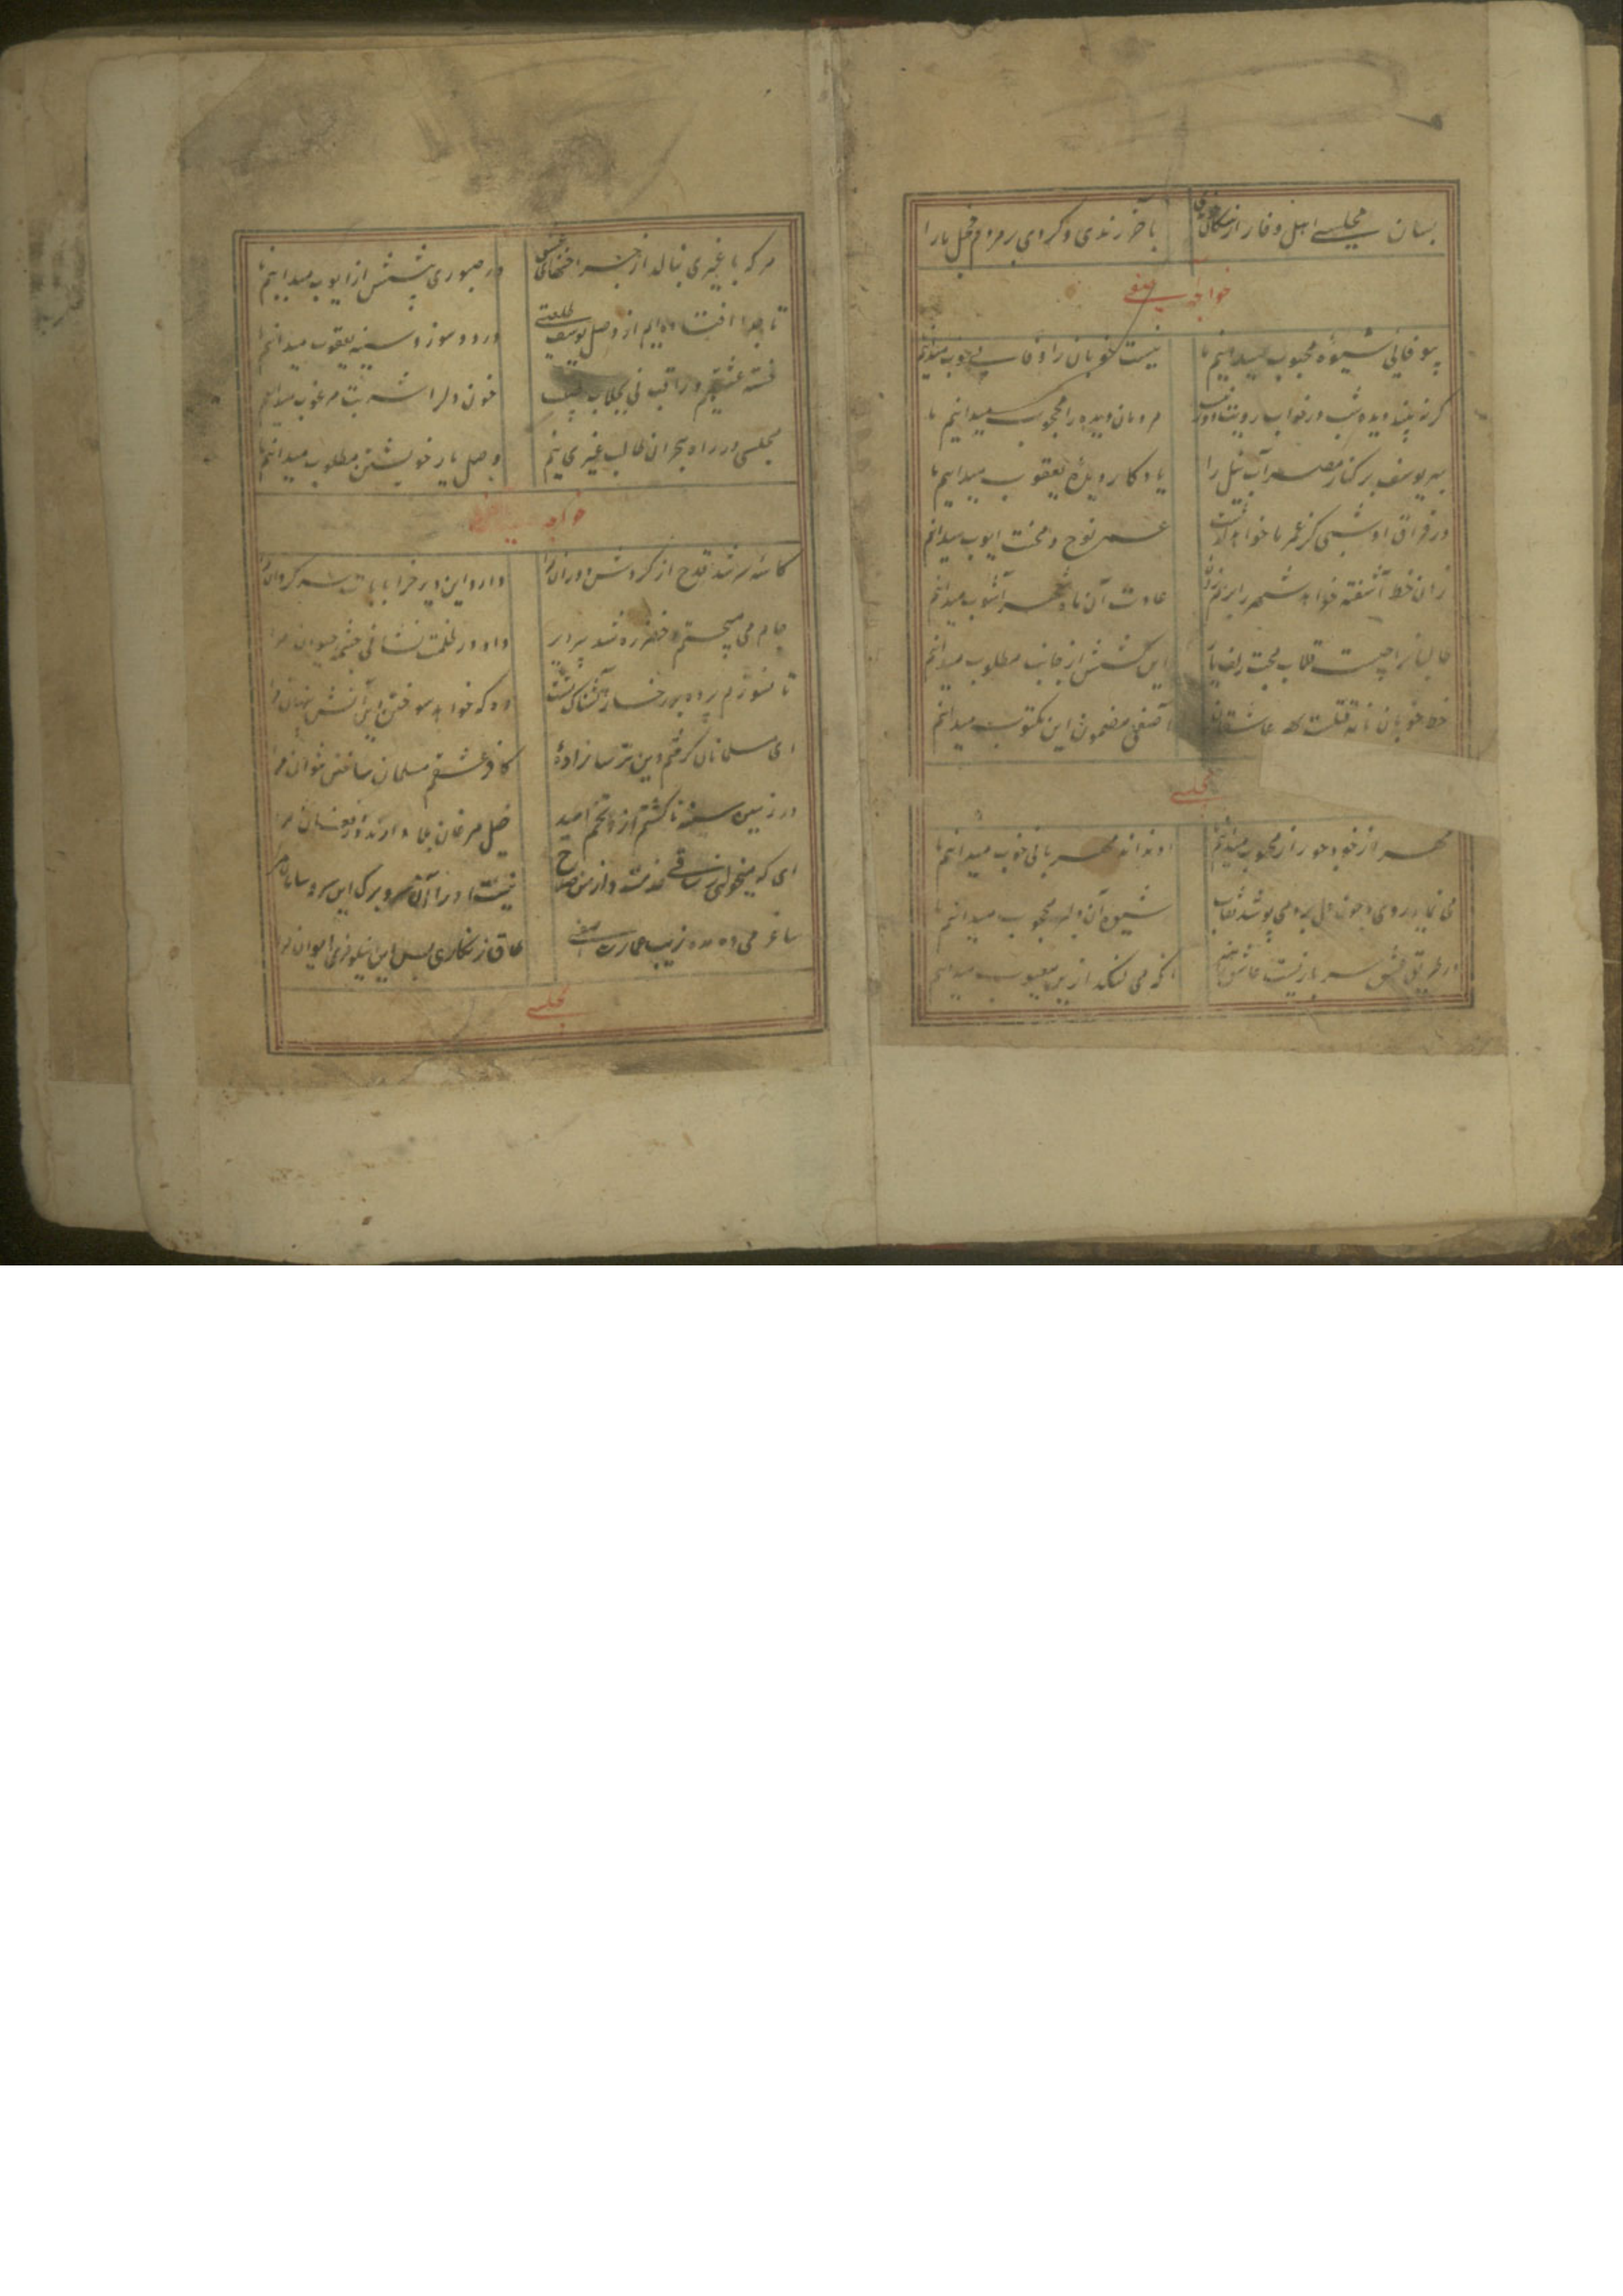 بسان مجلسی اهل وفا را از
بآخر رندی و کردی بر مردم خجل ما را
خواجه آصفی
بیوفایی شیوه محبوب میدانیم ما
نیست خوبان را وفا خوب میدانیم
گر نه بیند دیده شب در خواب رویت
مردمان دیده را محجوب میدانیم ما
بی یوسف بر کنار مصر آب نیل را
یادگار دیده یعقوب میدانیم ما
در فراق او شبی کز عمر ما خواهد گذشت
عمر نوح و محنت ایوب میدانیم
زان خط آشفته خواهد شهر را بر هم زدن
عادت آن ماه شهر آشوب میدانیم
جان ما را چیست قلاب محبت زلف یار
این کشش از جانب مطلوب میدانیم
خط خوبان نامه قتلست عاشقان
آصفی مضمون این مکتوب میدانیم
مجلسی
مهر از خود جور از محبوب میدانیم
او نداند مهربانی خوب میدانیم ما
می نماید روی و چون دل برد می پوشد نقاب
شیوه آن دلبر محجوب میدانیم ما
در طریق عشق سر بازیست
میدانیم
هر که با غیری نبالد از
در صبوری بیشش از ایوب میدانیم ما
تا جدا افتاده ایم از وصل یوسف طلعتی
درد و سوز و سینه یعقوب میدانیم ما
خسته عشقیم و را قند نی جلاب نیست
خون دل را شربت مرغوب میدانیم
مجلسی در راه هجران طالب غیری نیم
وصل یار خویشتن مطلوب میدانیم ما
خواجه آصفی
کاسه سر شد قدح از گردش دوران مرا
دارد این دیر خراب آباد سرگردان مرا
جام می میجستم و خضر ره شد پیر دیر
داد در ظلمت نشانی چشمه حیوان مرا
تا نسوزم پرده بر رخسار آتشناک بست
وه که خواهد سوختن این آتش پنهان مرا
ای مسلمانان گرفتم دین ترسا زاده
کافر عشقم مسلمان ساختن نتوان مرا
در زمین سینه تا کشتم از او تخم امید
خیل مرغان بلا دارند در افغان مرا
ای که میخوانی ز ساقی خدمت و از من صلاح
نیست او را آن سر و برگ این سر و سامان مرا
ساغر می ده مده زیب عمارت آصفی
طاق زنگاری بس این نیلوفری ایوان مرا
مجلسی